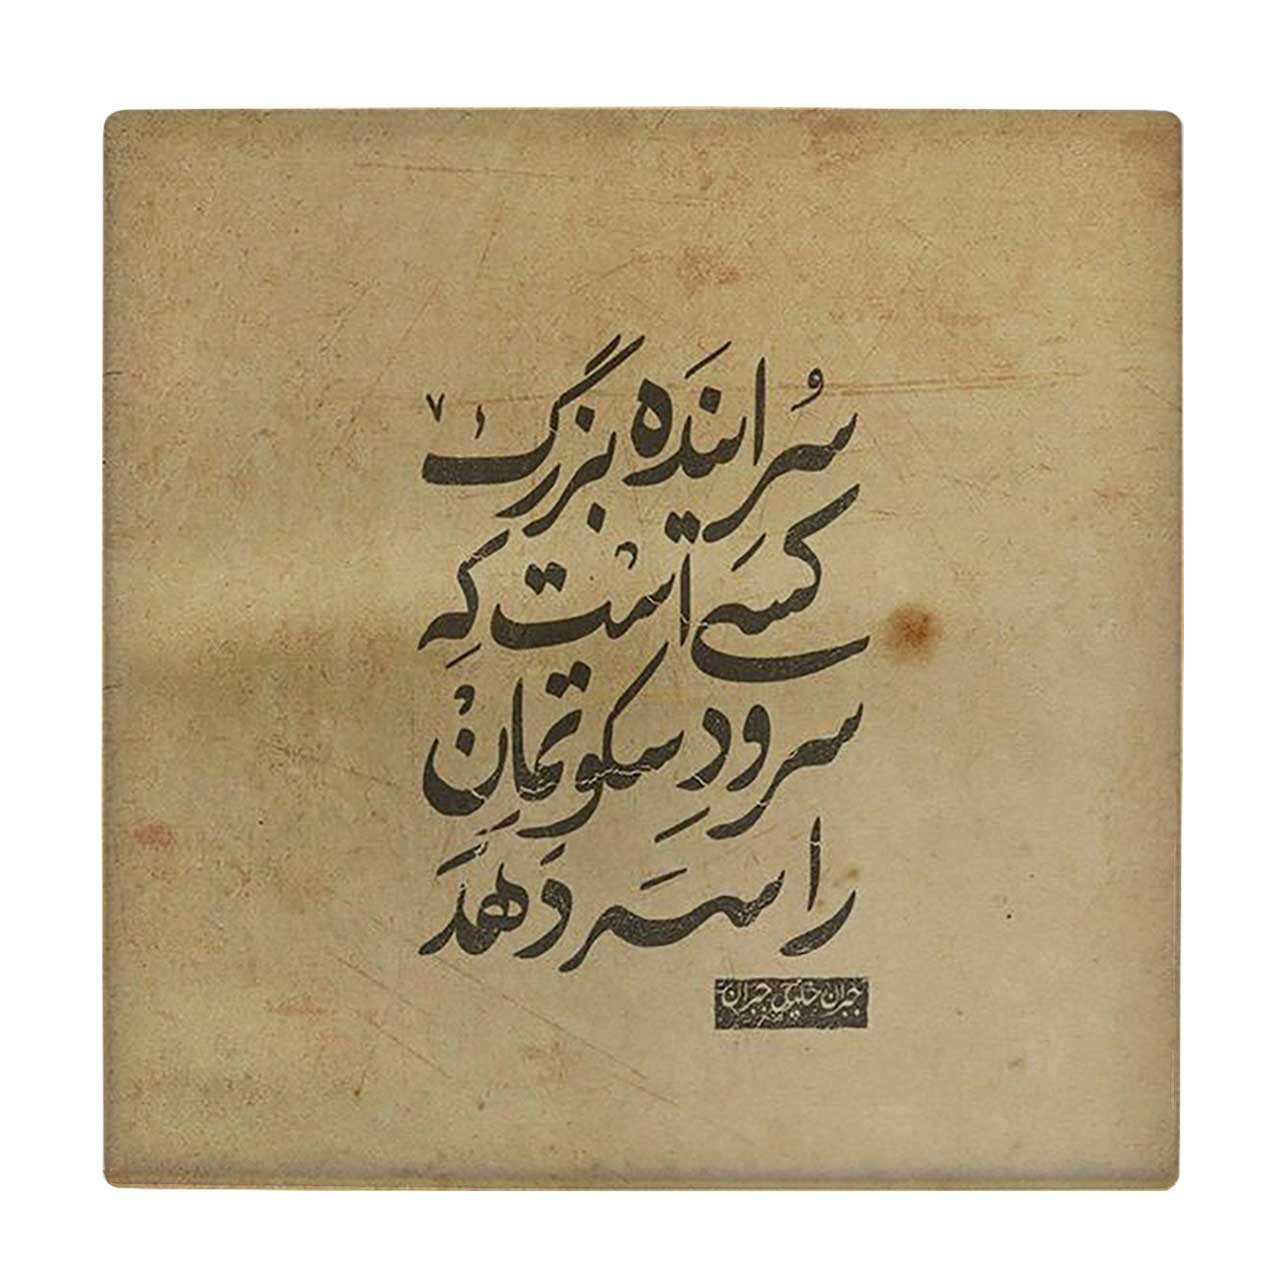 سُراینَده بزرگ
کسَی است که
سرودِ سکوتمان
را سَر دَهدَ
جبران خلیل جبران